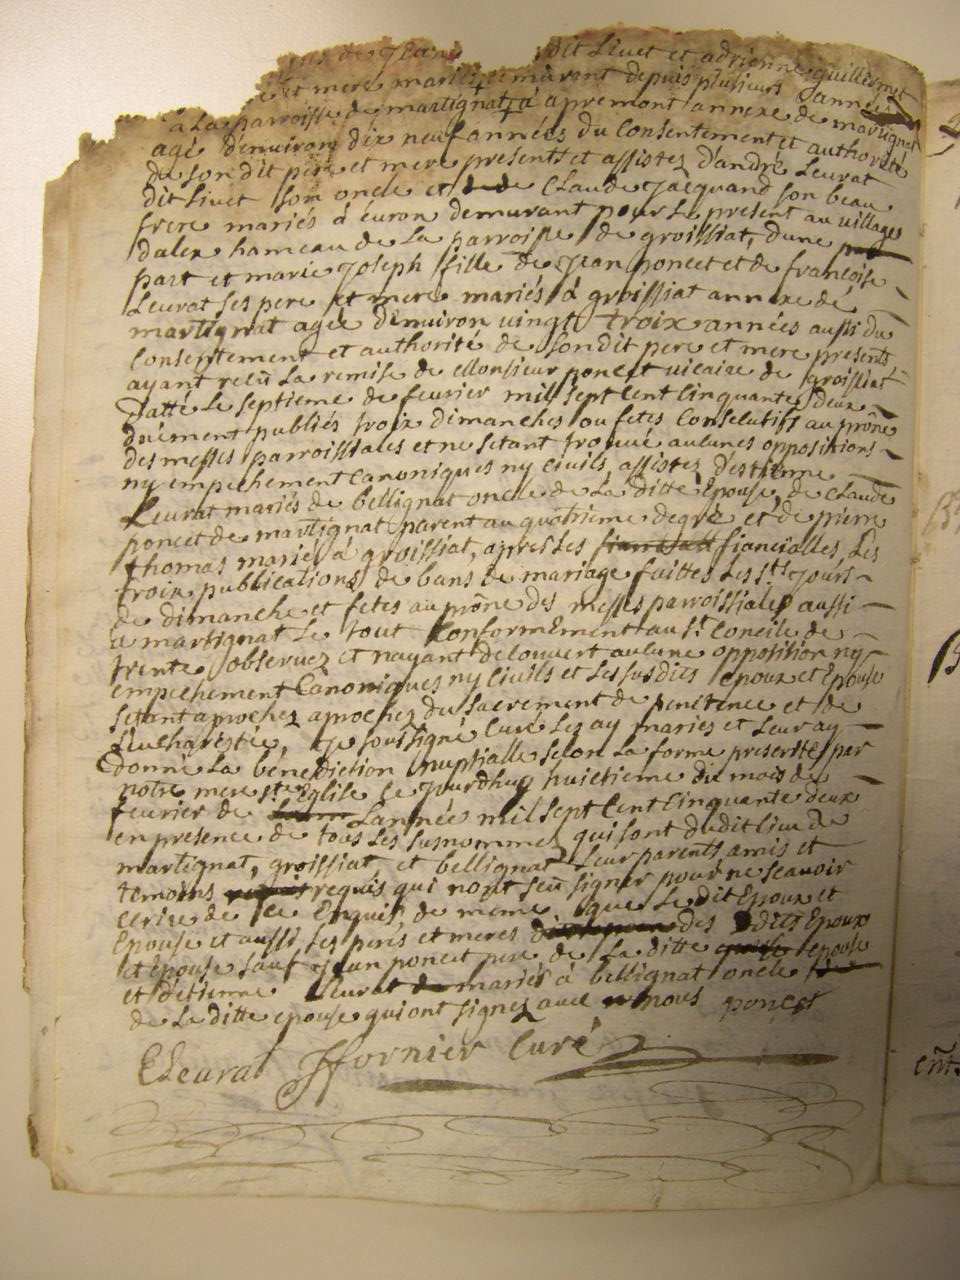 fils de Jean dit Livet et adrienne guillermet
et mere mariés et demurant depuis plusieurs années
a La parroisse de martignat, à apremont annexe de martignat
agé denviron dix neuf années du Consentement et authorité
de son dit pere et mere presents et assistez d'andré Leurat
dit Livet son oncle et de Claude Jacquand son beau
frere mariés à évron demurant pour Le present au village
dalex hameau de La parroisse de groissiat, dune
part et marie Joseph ffille de Jean poncet et de francoise
Leurat ses pere et mere mariés à groissiat annexe de
martignat agée denviron vingt troix années aussi du
Consentement et authorité de son dit pere et mere presents
ayant recû La remise de Monsieur poncet vicaire de groissiat
datté Le septieme de fevrier mil sept Cent Cinquante deux
duëment publiés troix dimanches ou fetes Consecutifs au prône
des messes parroissiales et ne setant trouvé aucunes oppositions
ny empechement Canoniques ny Civils, assistez destienne
Leurat mariés de bellignat oncle de La ditte Epouse, de Claude
poncet de martignat parent au quatrieme degré et de pierre
thomas mariés à groissiat, apres Les fiancialles, Les
troix publications de bans de mariage faittes Les sts Jours
de dimanche et fetes au prône des messes parroissiales aussi
a martignat Le tout Conformement au st Concile de
trente, observez et nayant decouvert aucune opposition ny
empechement Canoniques ny Civils et Les susdits epoux et Epouse
setant aprochez aprochez du sacrement de penitence et de
Leucharistie, Je soussigné Curé Les ay mariés et Leur ay
donné La bénediction nuptialle selon La forme prescritte par
notre mere ste Eglise Ce Jourdhuy huictieme du mois de
fevrier de Lannée mil sept Cent Cinquante deux
en presence de tous Les susnommez qui sont dudit lieu de
martignat, groissiat et bellignat Leur parents amis et
temoins requis qui nont seû signer pour ne scavoir
ecrire de ce Enquis de meme que Le dit Epoux et
Epouse et aussi Les peres et meres des dits Epoux
et Epouse sauf Jean poncet pere de La ditte epouse
et d'etienne Leurat mariés à bellignat oncle
de La ditte epouse qui ont signez avec nous poncet
E Leurat ffornier Curé